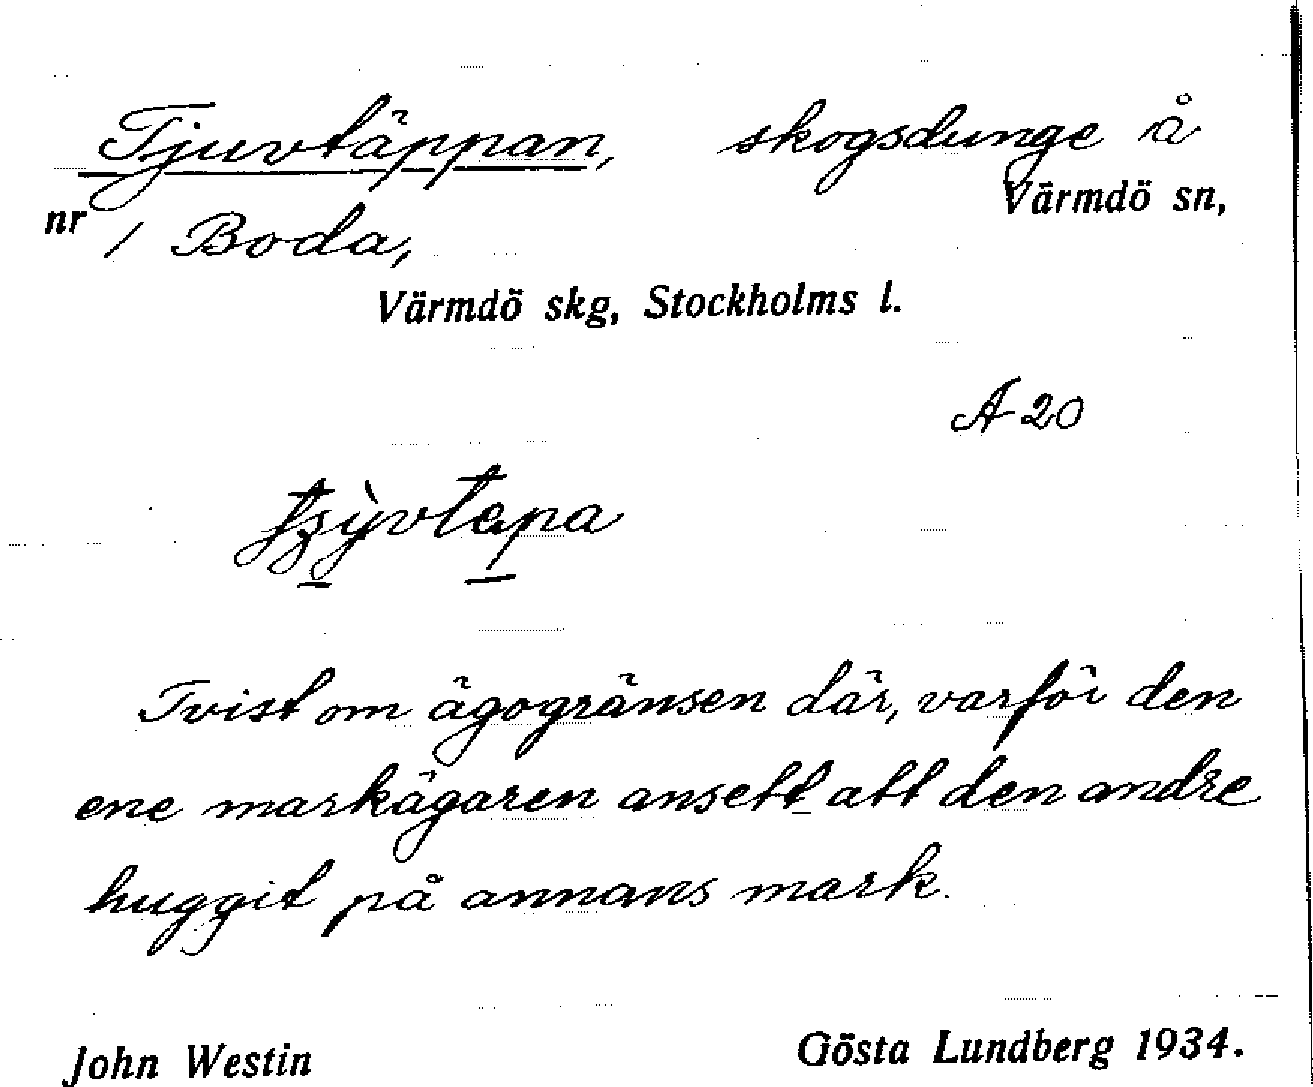 Tjuvtäppan, skogsdunge å
Värmdö sn,
nr 1 Boda,
Värmdö skg, Stockholms l.
A 20
Tvist om ägogränsen där, varför den
ene markägaren ansett att den andre
huggit på annans mark.
John Westin Gösta Lundberg 1934.